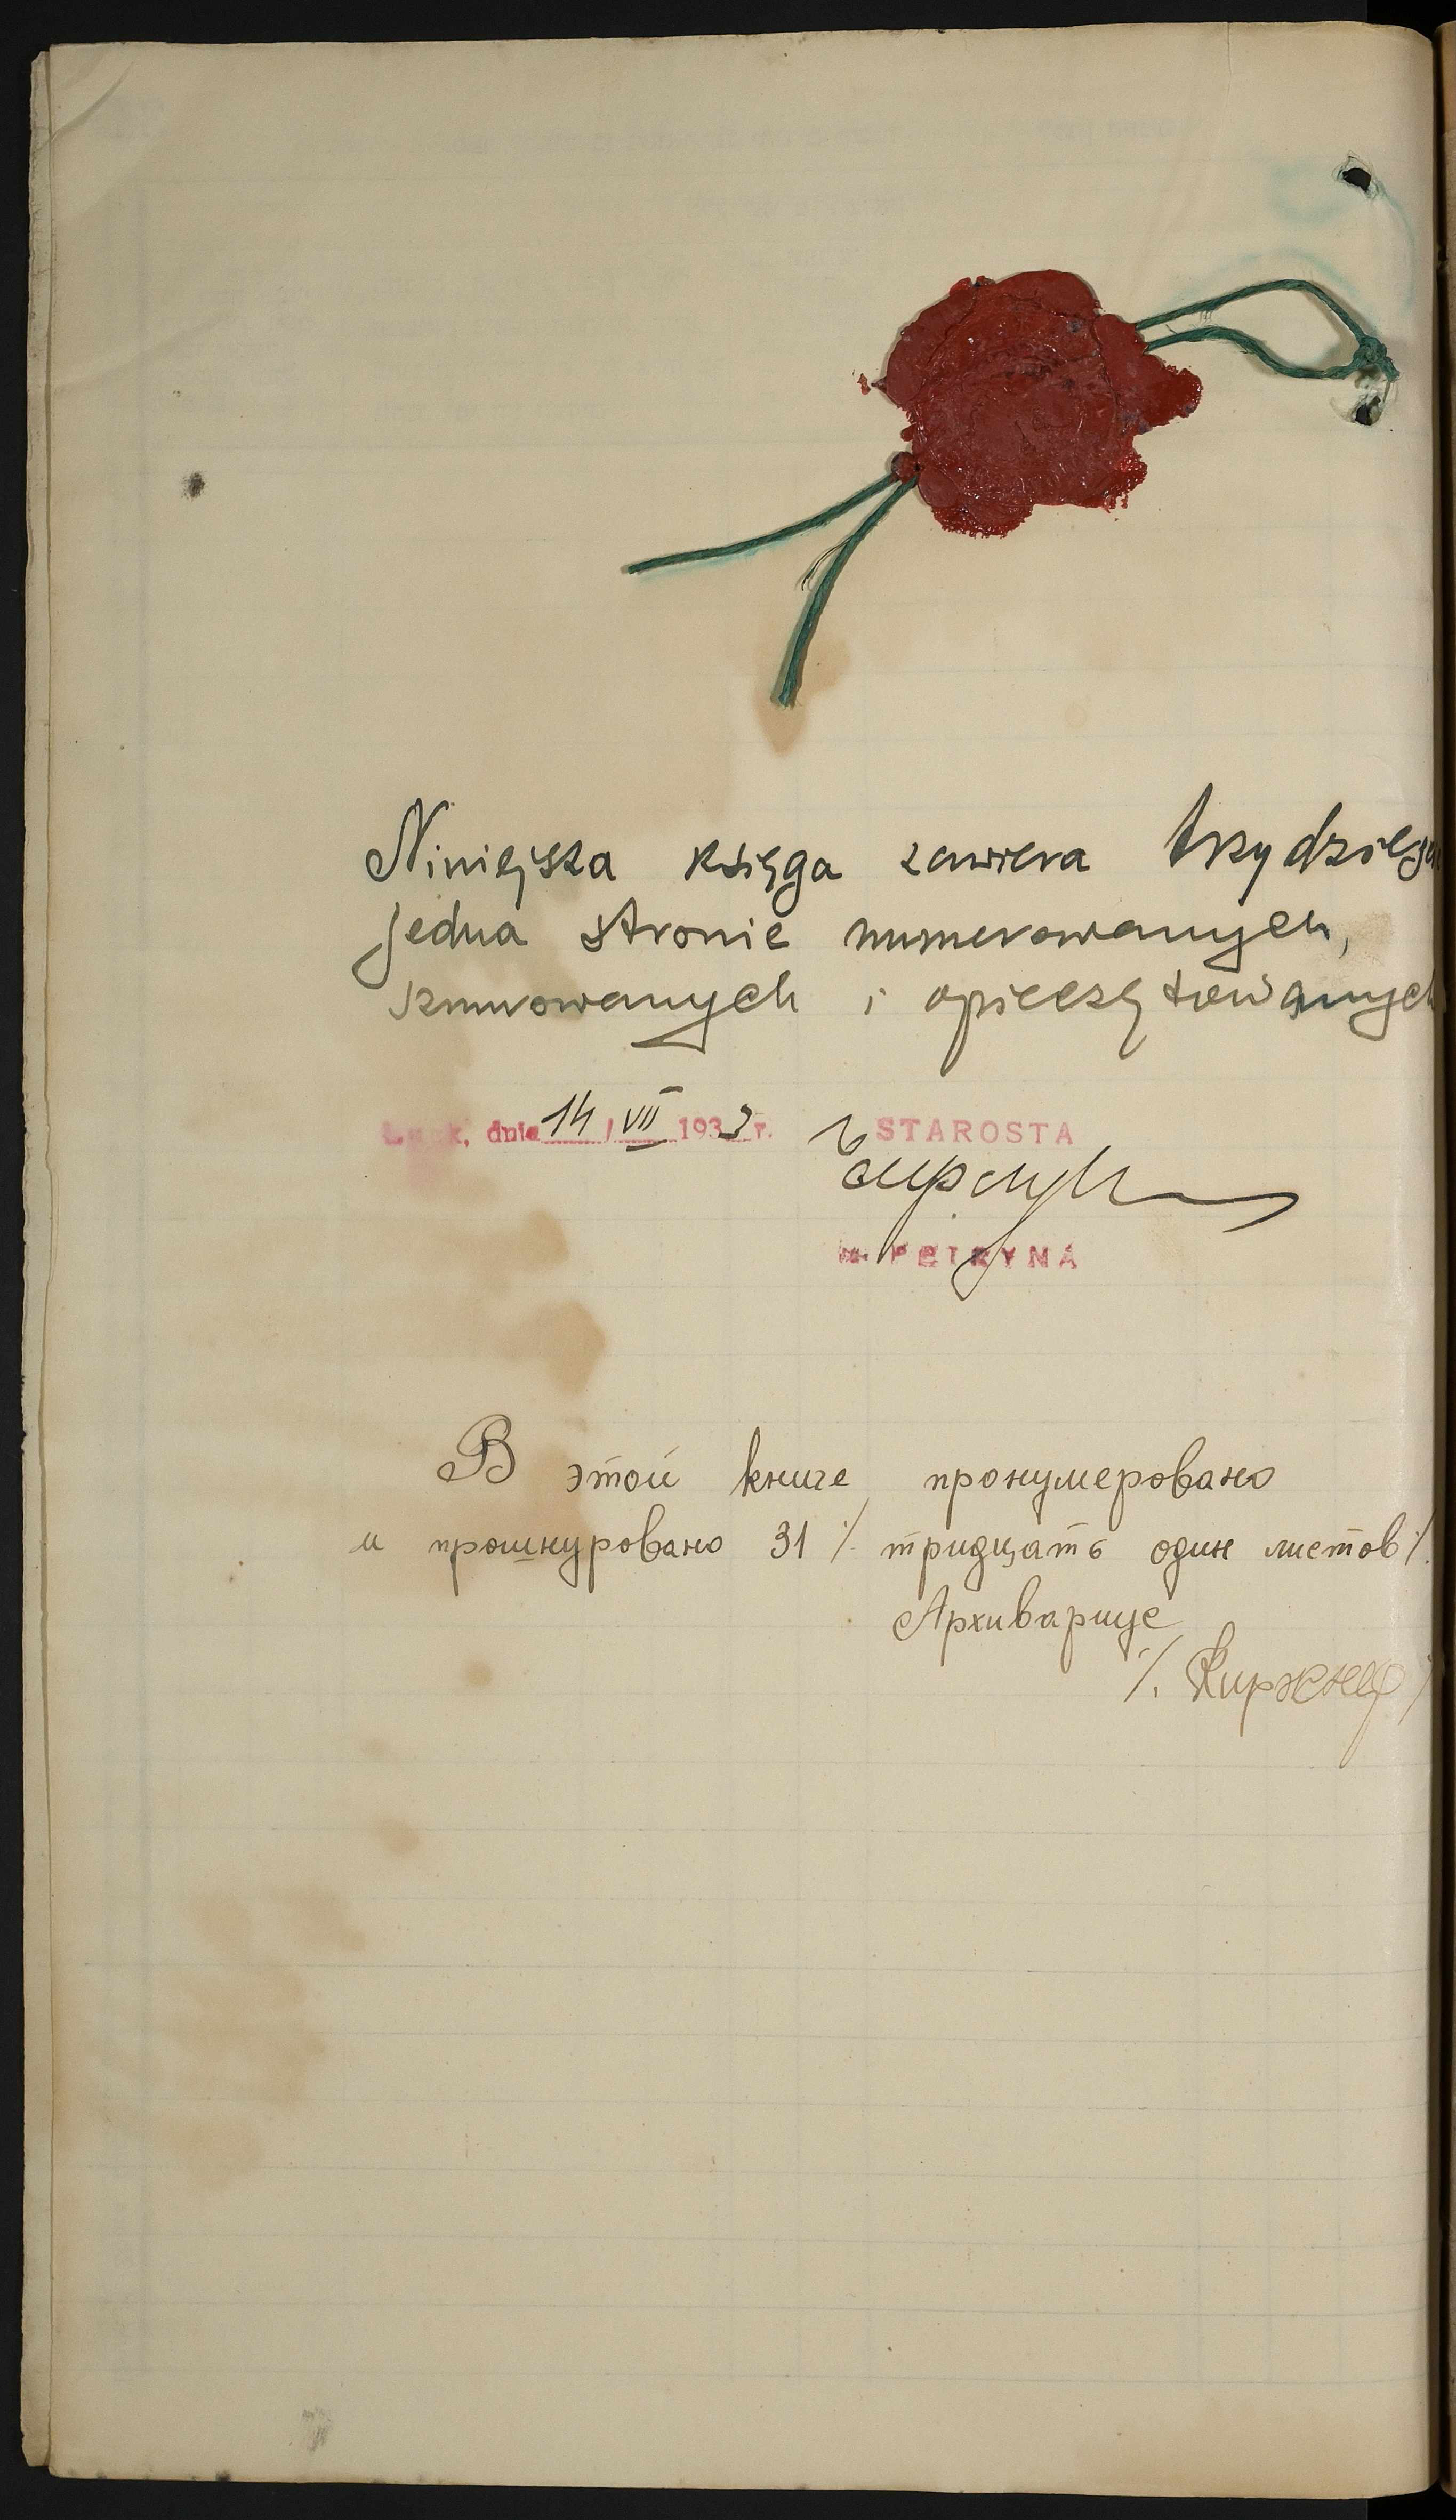 Niniejsza księga zawiera trzydzieści
jedna stronic numerowanych,
sznurowanych i opieczętowanych
Łuck, dnia 14 / VII 1933 r.
STAROSTA
PETRYNA
В этой книге пронумеровано
и прошнуровано 31 /. тридцать один листов /.
Архивариус